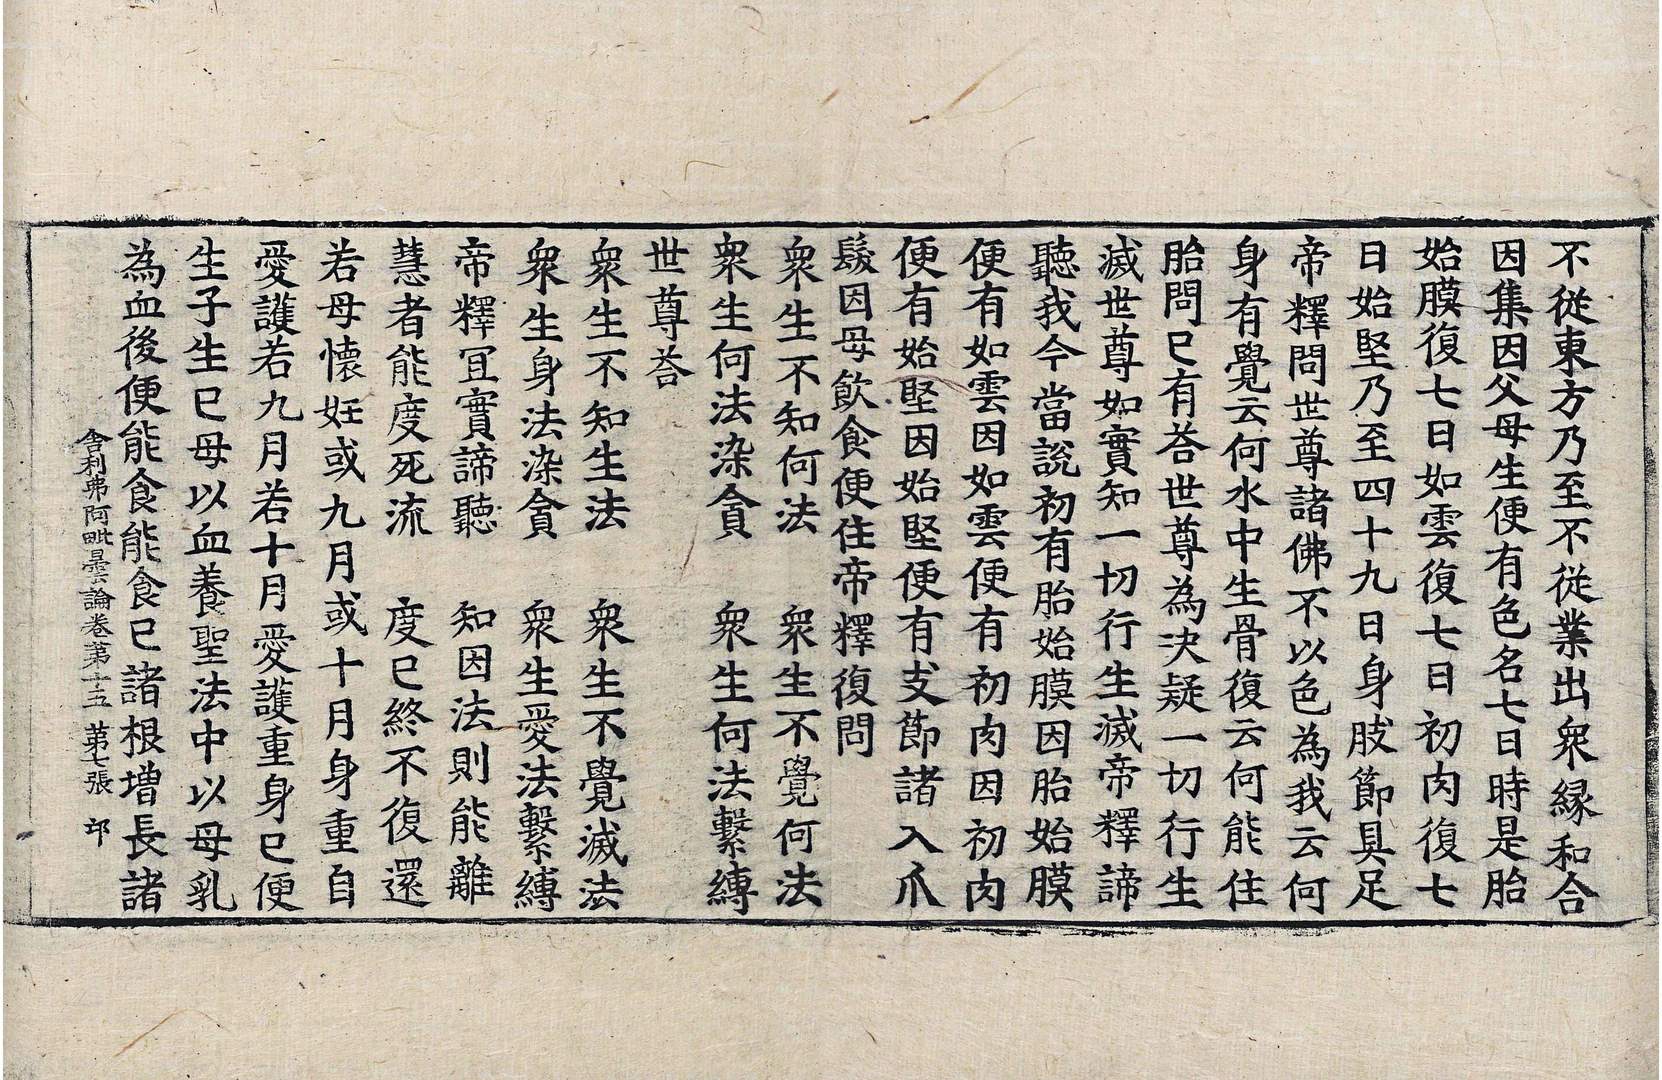 不從東方乃至不從業出衆縁和合
因集因父母生便有色名七日時是胎
始膜復七日如雲復七日初肉復七
日始堅乃至四十九日身肢節具足
帝釋問世尊諸佛不以色為我云何
身有覺云何水中生骨復云何能住
胎問已有荅世尊為决疑一切行生
滅世尊如實知一切行生滅帝釋諦
聽我今當說初有胎始膜因胎始膜
便有如雲因如雲便有初肉因初肉
便有始堅因始堅便有支節諸入爪
髮因母飲食便住帝釋復問
衆生不知何法　衆生不覺何法
衆生何法染貪　衆生何法繫縛
世尊荅
衆生不知生法　衆生不覺滅法
衆生身法染貪　衆生愛法繫縛
帝釋冝實諦聽　知因法則能離
慧者能度死流　度已終不復還
若母懷妊或九月或十月身重自
愛護若九月若十月愛護重身已便
生子生已母以血養聖法中以母乳
為血後便能食能食已諸根增長諸
舍利弗阿毗曇論卷第十五　第七張　邙